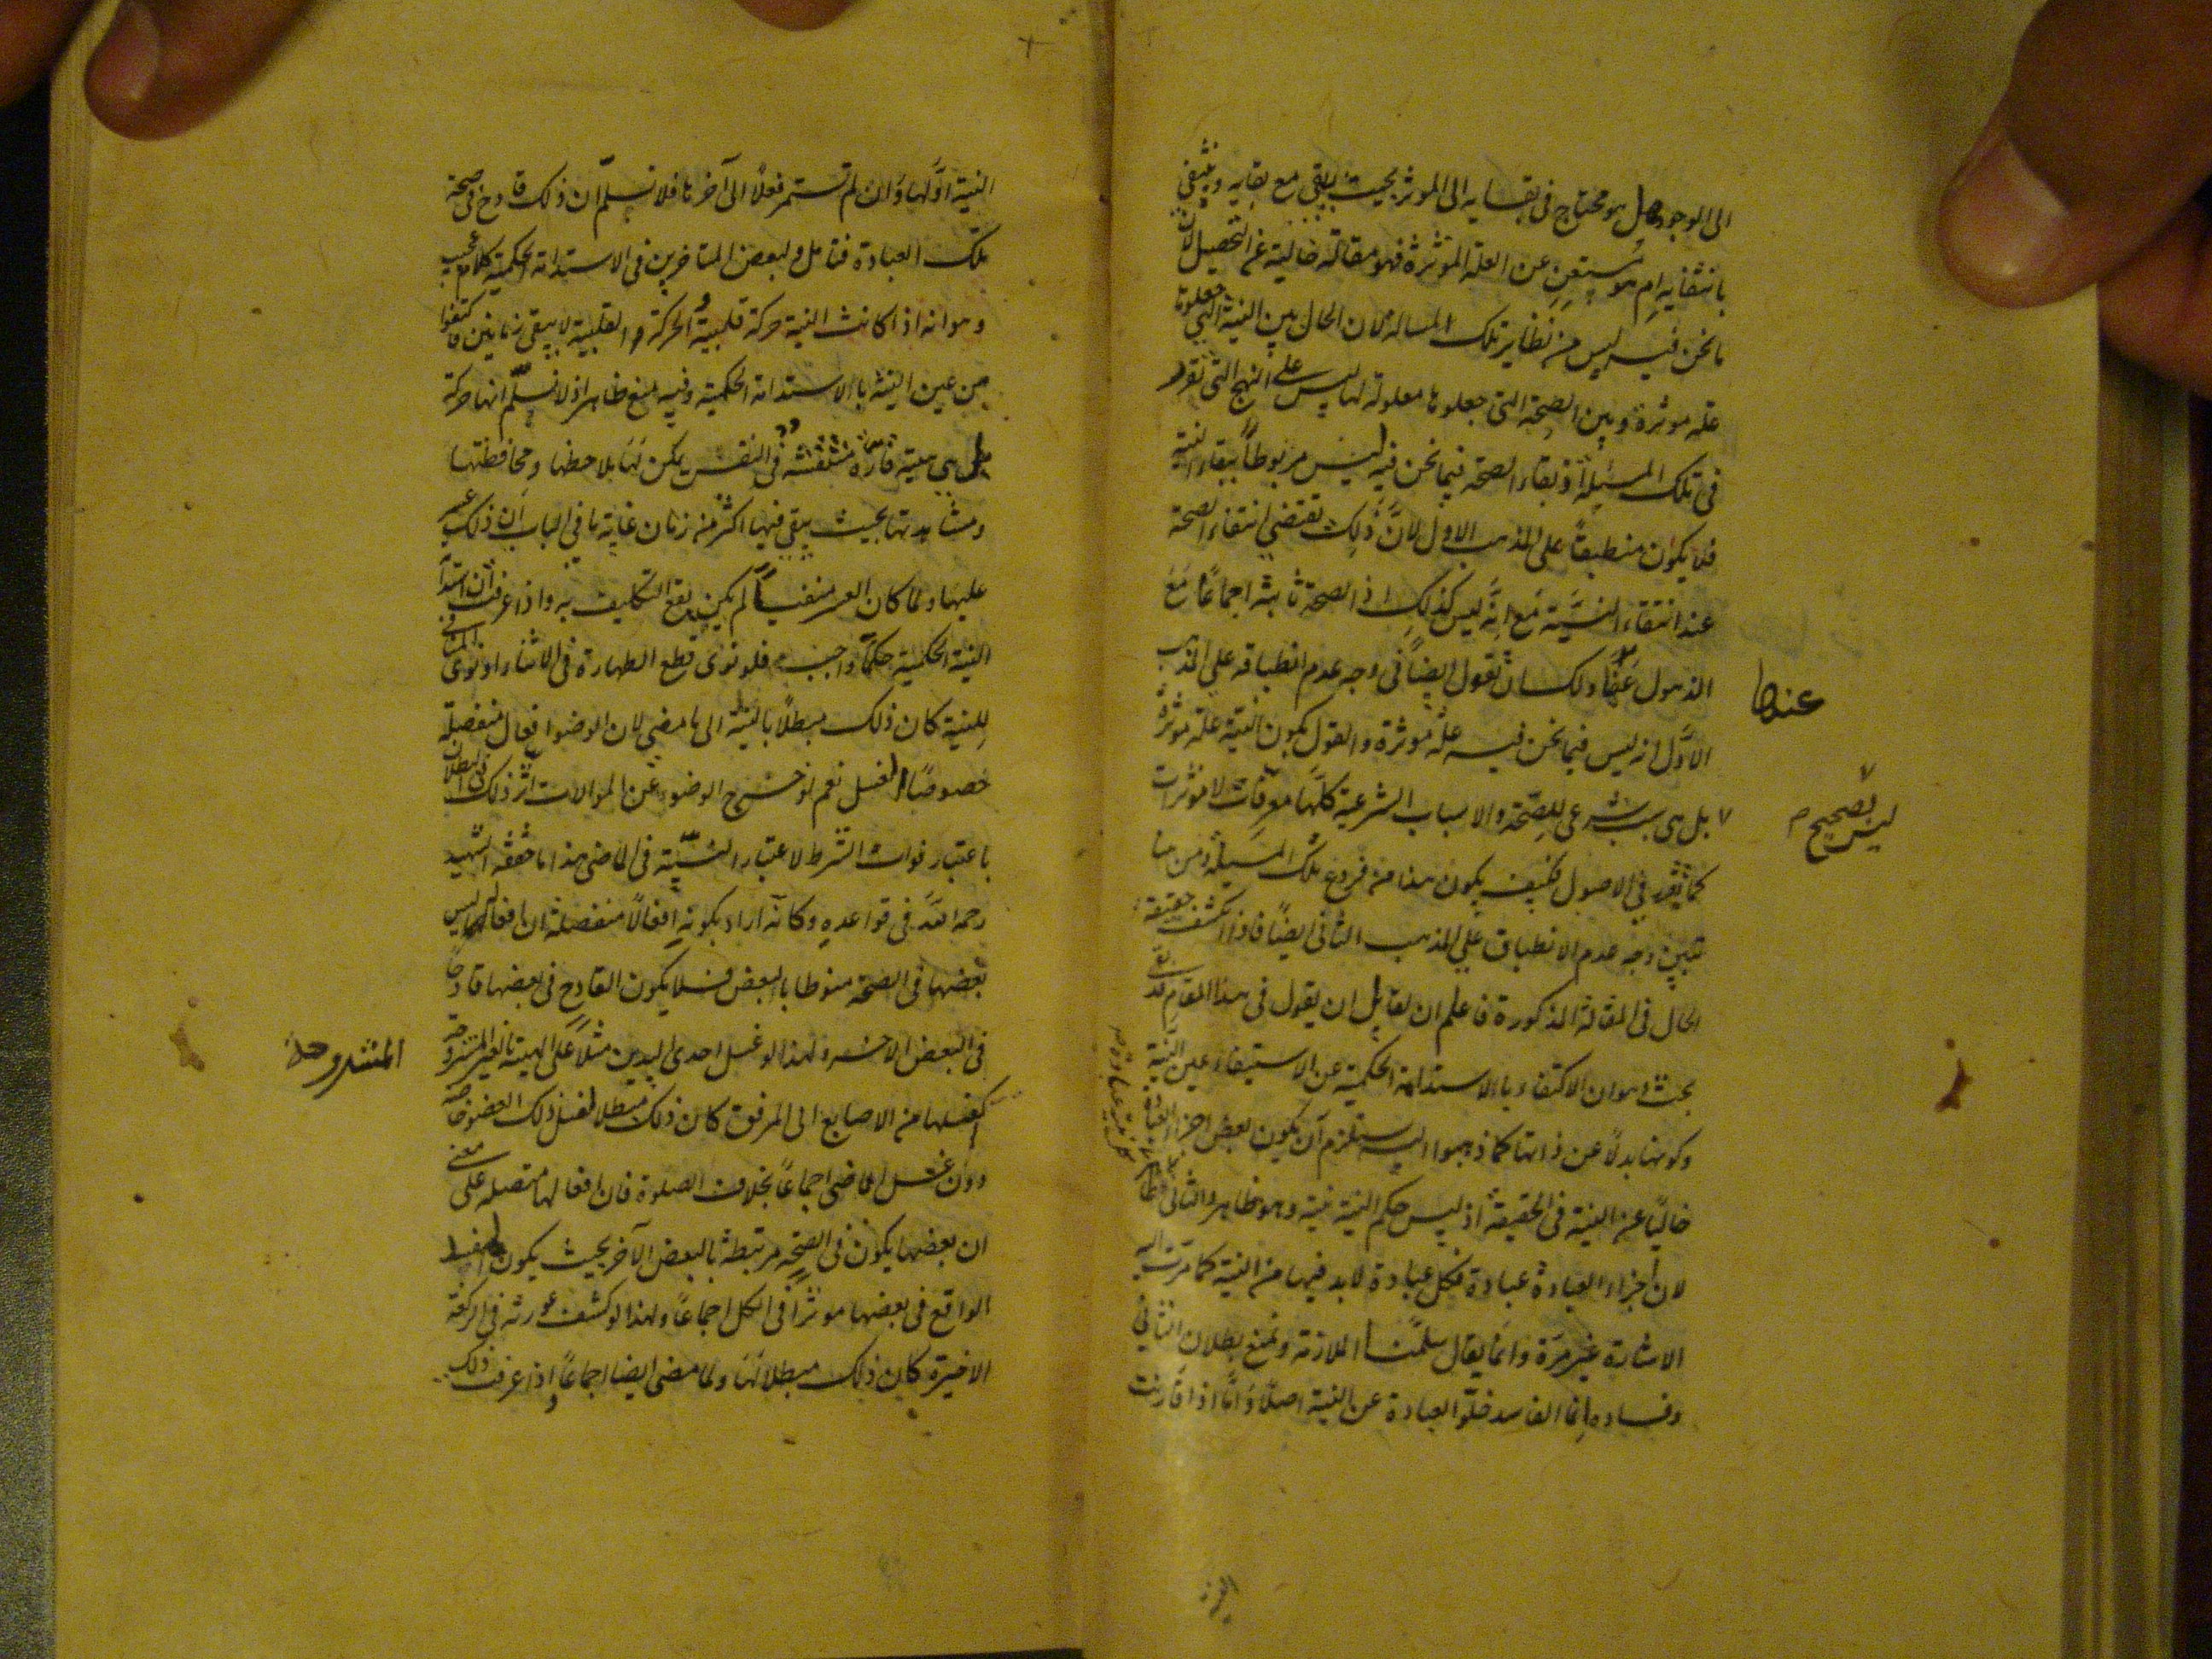 الى الوجود هل هو محتاج فى بقايه الى الموثر بحيث يبقى مع بقايه وينتفى
بانتفايه ام هو مستغن عن العلة المؤثرة فهو مقالة خالية عن التحصيل لان
ما نحن فيه ليس من نظاير تلك المسالة لان الحال بين النية التى جعلوها
علة موثرة وبين الصحة التى جعلوها معلولة لها ليس على النهج التى تقرر
فى تلك المسئلة اذ بقاء الصحة فيما نحن فيه ليس مربوطاً ببقاء النية
فلا يكون منطبقاً على المذهب الاول لانّ ذلك يقتضى انتفاء الصحة
عند انتفاء النيّة مع انّه ليس كذلك اذ الصحة ثابتة اجماعاً مع
الذهول عنها ولك ان تقول ايضاً فى وجه عدم انطباقه على المذهب
عندها
الاوّل انه ليس فيما نحن فيه علة موثرة والقول بكون النية علة موثرة
ليس بصحيح
بل هى سبب شرعى للصّحة والاسباب الشرعية كلّها معرفات لا موثرات
كما تقرر فى الاصول فكيف يكون هذا من فروع تلك المسئلة ومن هنا
تبين وجه عدم الانطباق على المذهب الثانى ايضاً فاذا انكشف حقيقة
الحال فى المقالة المذكورة فاعلم ان لقايل ان يقول فى هذا المقام قد بقى
بحث وهو ان الاكتفاء بالاستدامة الحكمية عن الاستيفاء عين النيّة
وكونها بدلاً عن ذاتها كما ذهبوا اليه يستلزم ان يكون بعض اجزاء العبادة
خالياً عن النية فى الحقيقة اذ ليس حكم النية نية وهو ظاهر والثانى باطل
لان اجزاء العبادة عبادة فكل عبادة لابد فيها من النية كما مرّت اليه
الاشارة غير مرّة وانما يقال سلّمنا الملازمة ونمنع بطلان الثانى
وفساده انما الفاسد خلوّ العبادة عن النية اصلاً وامّا اذا قارنت
النية اوّلها وان لم تستمر فعلاً الى آخرها فلا نسلّم ان ذلك قادح فى صحة
تلك العبادة فتامل ولبعض المتاخرين فى الاستدامة الحكمية كلام عجيب
وهو انه اذا كانت النية حركة قلبية والحركة القلبية لا يبقى زمانين فاكتفوا
من عين النية بالاستدامة الحكمية وفيه منع ظاهر اذ لا نسلّم انها حركة
بل هى هيئة قارة فى النفس يمكن لها بلاحظها ومحافظتها
ومشاهدتها بحيث يبقى فيها اكثر من زمان غاية ما فى الباب ان ذلك عسر
عليها ولما كان العسر منفياً لم يكن يقع التكليف به واذا عرفت ان استدامة
النية الحكمية حكماً واجب فلو نوى قطع الطهارة فى الاثناء او نوى المنافى
للنية كان ذلك مبطلاً بالنية الى ما مضى لان الوضوء افعال منفصلة
خصوصاً الغسل نعم لو خرج الوضوء عن الموالات اثّر ذلك فى البطلان
باعتبار فوات الشرط لا عتبار النيّة فى الماضى هذا ما حققه الشهيد
رحمه الله فى قواعده وكانه اراد بكونه افعالاً منفصلة ان افعالها ليس
بعضها فى الصحة منوطا بالبعض فلا يكون القادح فى بعضها قادحا
فى البعض الاخر ولهذا لو غسل احدى اليدين مثلاً على الهيئة الغير المشروعة
المشروعة
كغسلها من الاصابع الى المرفق كان ذلك مبطلا لغسل ذلك العضو خاصة
دون غسل الماضى اجماعاً بخلاف الصلوة فان افعالها متصلة على معنى
ان بعضها يكون فى الصحّة مرتبطة بالبعض الآخر بحيث يكون المفسد
الواقع فى بعضها موثراً فى الكل اجماعاً ولهذا لو كشف عورته فى الركعة
الاخيرة كان ذلك مبطلا لها ولما مضى ايضا اجماعاً واذا عرفت ذلك